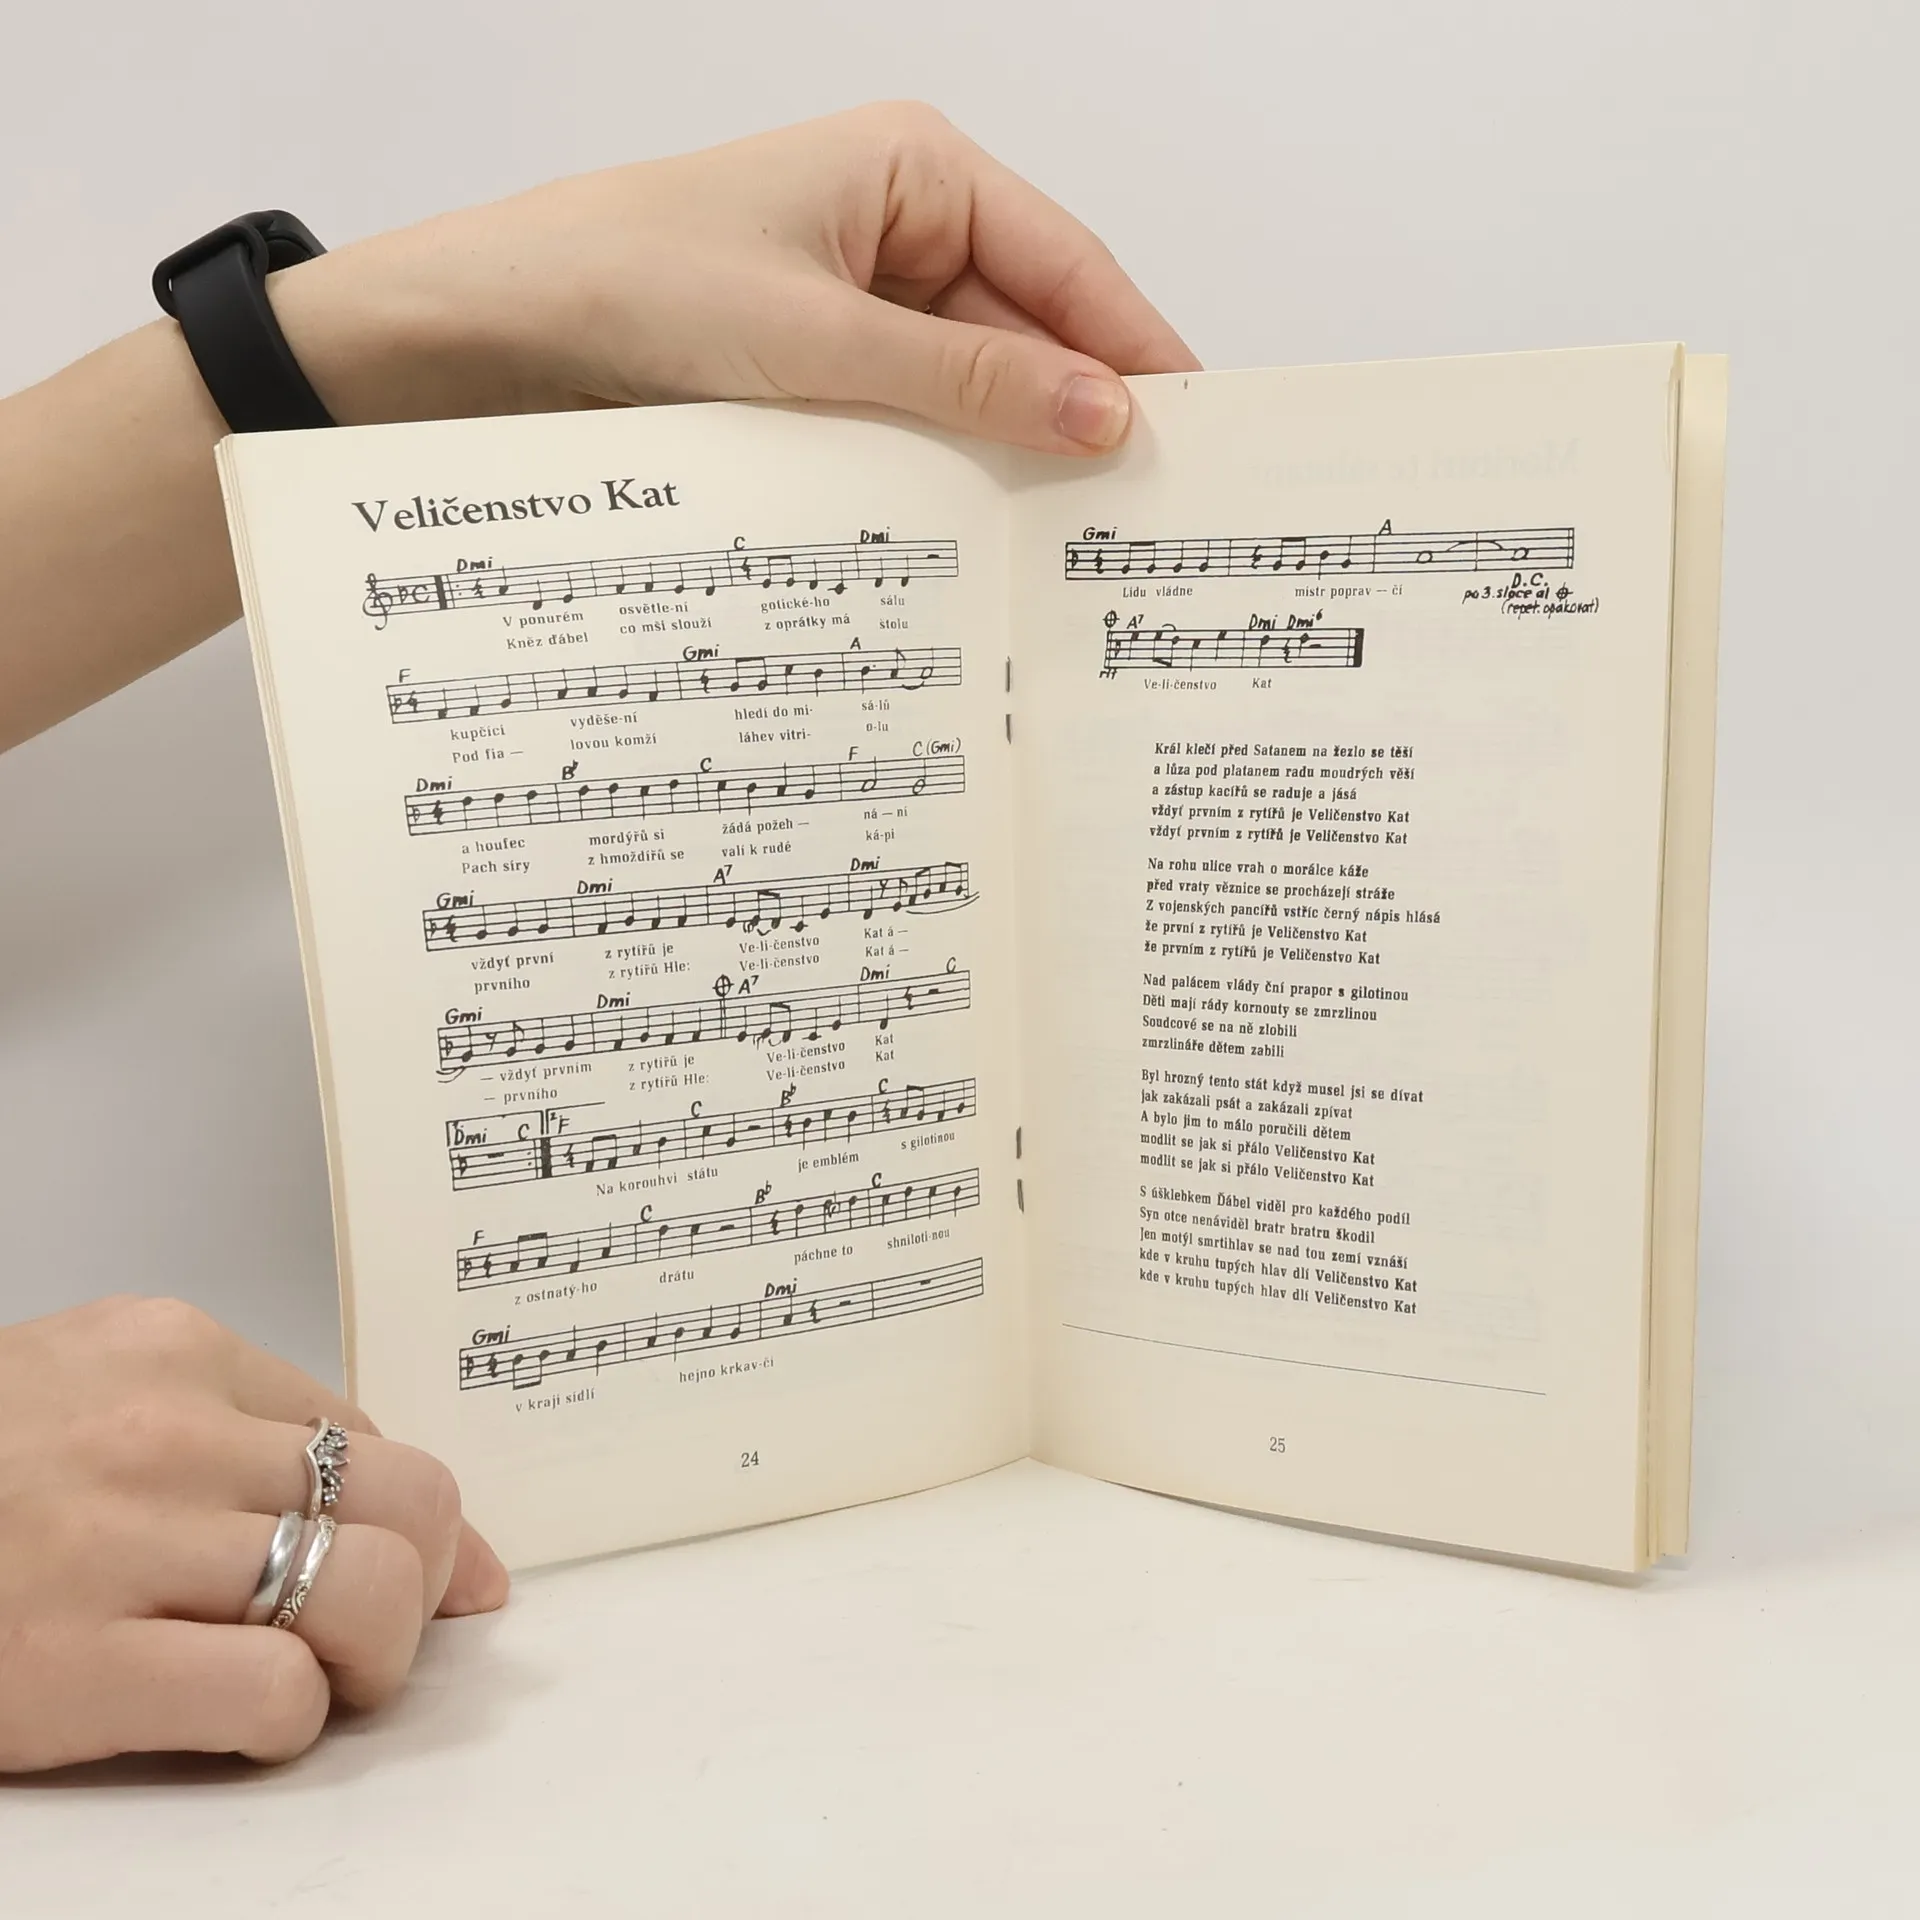 Veličenstvo Kat
Dmi C Dmi
V ponurém osvětle-ní gotické-ho sálu
Kněz ďábel co mši slouží z oprátky má štolu
F Gmi A
kupčíci vyděše-ní hledí do mi- sá-lů
Pod fia — lovou komží láhev vitri- o-lu
Dmi B♭ C F C (Gmi)
a houfec mordýřů si žádá požeh — ná — ní
Pach síry z hmoždířů se valí k rudé ká-pi
Gmi Dmi A7 Dmi
vždyť první z rytířů je Ve-li-čenstvo Kat á —
prvního z rytířů Hle: Ve-li-čenstvo Kat á —
Gmi Dmi A7 Dmi C
— vždyť prvním z rytířů je Ve-li-čenstvo Kat
— prvního z rytířů Hle: Ve-li-čenstvo Kat
1. Dmi C 2. F C B♭ C
Na korouhvi státu je emblém s gilotinou
F C B♭ C
z ostnatý-ho drátu páchne to shniloti-nou
Gmi Dmi
v kraji sídlí hejno krkav-čí
24
Gmi A
Lidu vládne mistr poprav — čí
D.C.
po 3. sloce al
(repet. opakovat)
A7 Dmi Dmi6
rit
Ve-li-čenstvo Kat
Král klečí před Satanem na žezlo se těší
a lůza pod platanem radu moudrých věší
a zástup kacířů se raduje a jásá
vždyť prvním z rytířů je Veličenstvo Kat
vždyť prvním z rytířů je Veličenstvo Kat
Na rohu ulice vrah o morálce káže
před vraty věznice se procházejí stráže
Z vojenských pancířů vstříc černý nápis hlásá
že první z rytířů je Veličenstvo Kat
že prvním z rytířů je Veličenstvo Kat
Nad palácem vlády ční prapor s gilotinou
Děti mají rády kornouty se zmrzlinou
Soudcové se na ně zlobili
zmrzlináře dětem zabili
Byl hrozný tento stát když musel jsi se dívat
jak zakázali psát a zakázali zpívat
A bylo jim to málo poručili dětem
modlit se jak si přálo Veličenstvo Kat
modlit se jak si přálo Veličenstvo Kat
S úšklebkem Ďábel viděl pro každého podíl
Syn otce nenáviděl bratr bratru škodil
Jen motýl smrtihlav se nad tou zemí vznáší
kde v kruhu tupých hlav dlí Veličenstvo Kat
kde v kruhu tupých hlav dlí Veličenstvo Kat
25